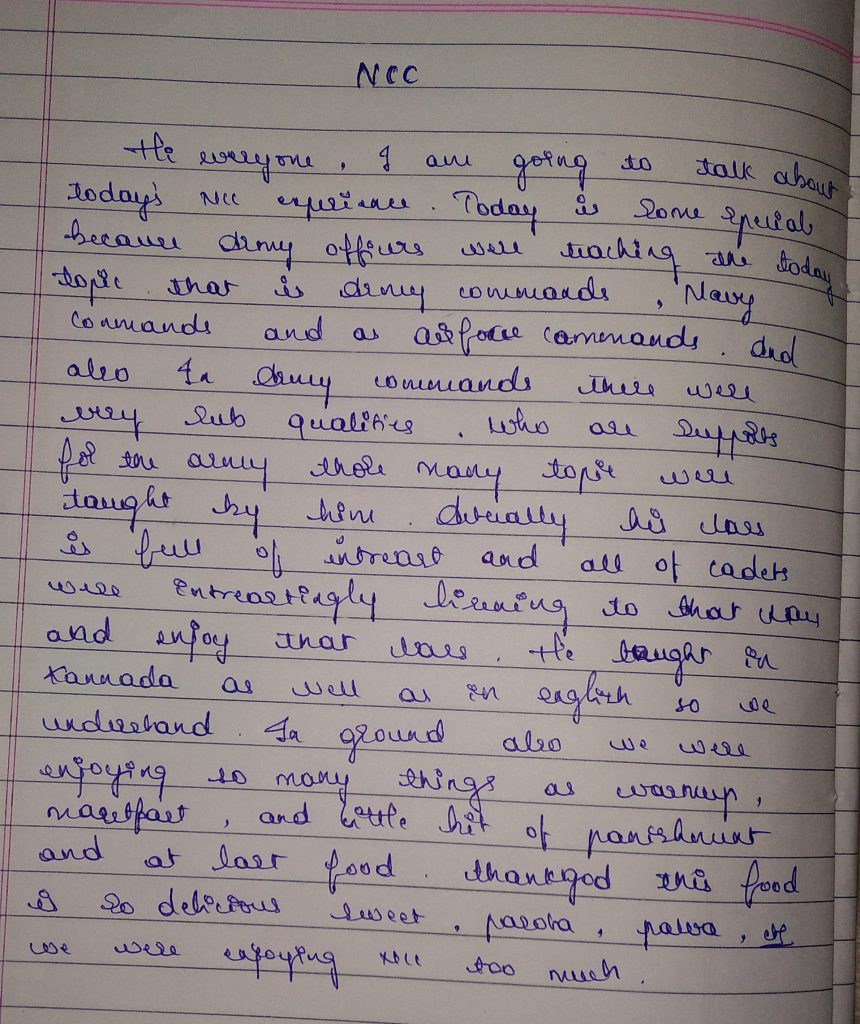 NCC
Hi everyone, I am going to talk about
today's NCC experience. Today is some special
because Army officers were teaching the today
topic that is Army commands, Navy
Commands and as airforce Commands. And
also In Army commands there were
very sub qualities. Who are supports
for the army those many topic were
taught by him. Actually his class
is full of intreast and all of cadets
were intreastingly lisening to that class
and enjoy that class. He taught in
Kannada as well as in english so we
understand. In ground also we were
enjoying so many things as warmup,
and little bit of panishment
and at last food. thankgod this food
is so delicious sweet, parota, palva,
we were enjoying NCC too much.